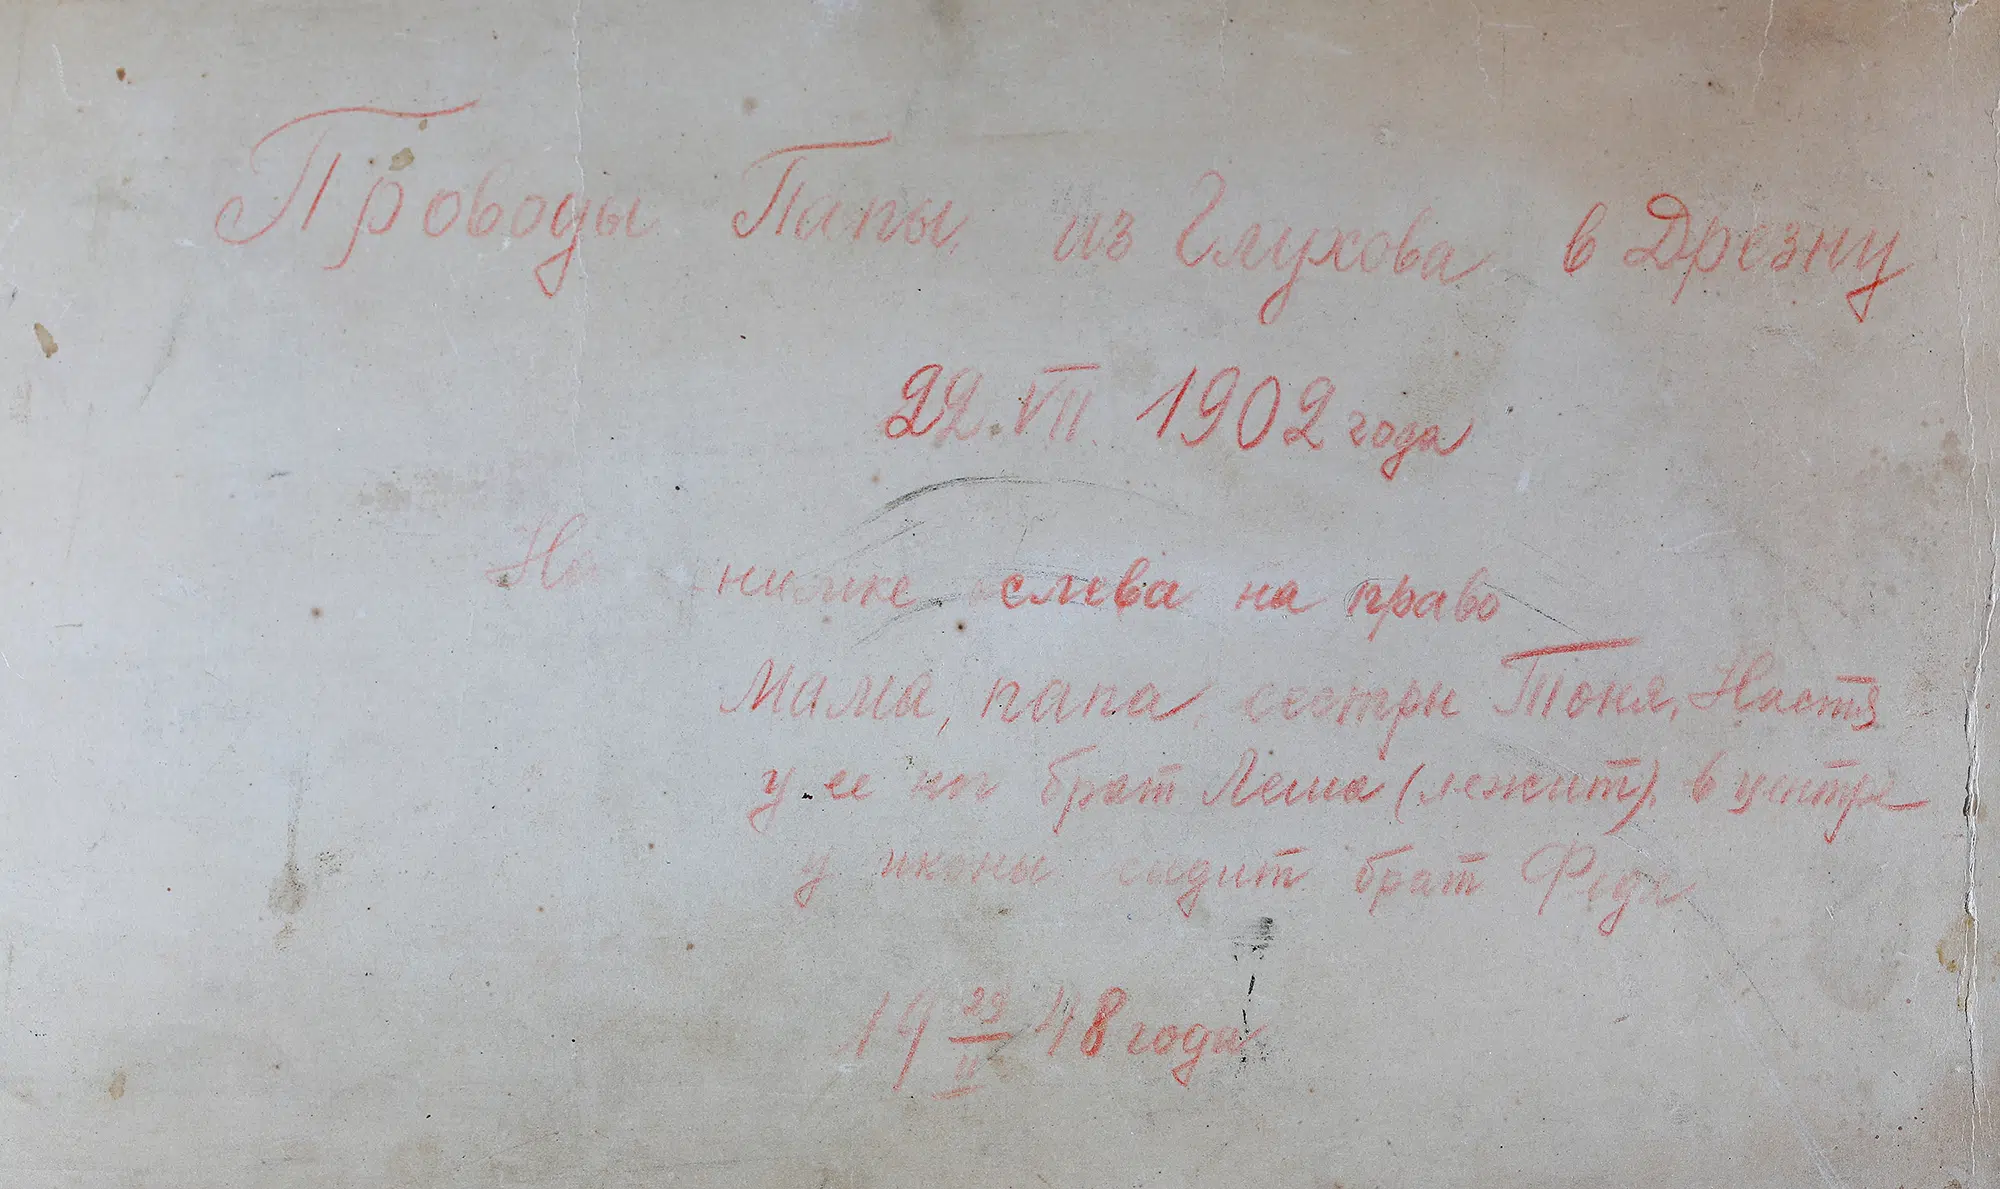 Проводы Папы из Глухова в Дрезну
22.VII.1902 года
На снимке слева на право
Мама, папа, сестры Тоня, Настя
у ее ног брат Леша (лежит), в центре
у иконы сидит брат Федя
19 29/II 48 года